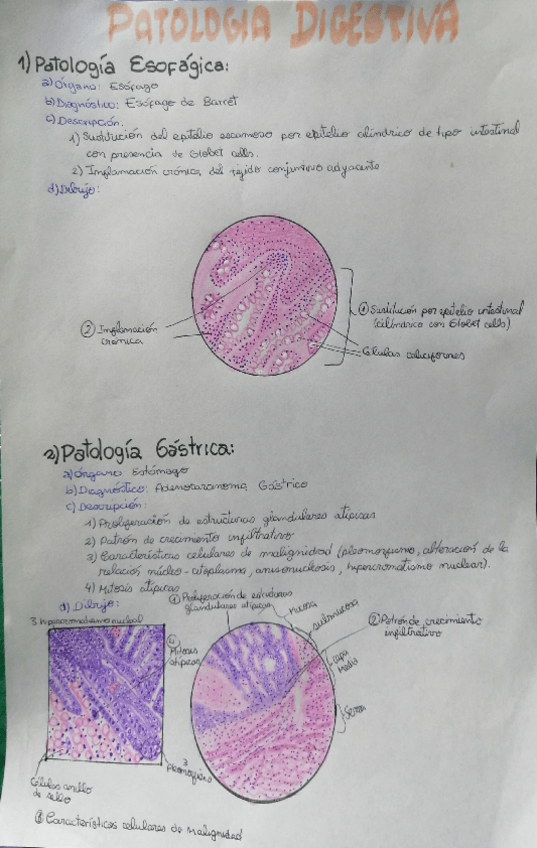 PATOLOGIA DIGESTIVA
1) Patología Esofágica:
a) Órgano: Esófago
b) Diagnóstico: Esófago de Barret
c) Descripción:
1) Sustitución del epitelio escamoso por epitelio cilíndrico de tipo intestinal
con presencia de Globet cells.
2) Inflamación crónica del tejido conjuntivo adyacente
d) Dibujo:
② Inflamación
crónica
① Sustitución por epitelio intestinal
(cilíndrico con Globet cells)
Células caliciformes
2) Patología Gástrica:
a) Órgano: Estómago
b) Diagnóstico: Adenocarcinoma Gástrico
c) Descripción:
1) Proliferación de estructuras glandulares atípicas
2) Patrón de crecimiento infiltrativo
3) Características celulares de malignidad (pleomorfismo, alteración de la
relación núcleo-citoplasma, anisonucleosis, hipercromatismo nuclear).
4) Mitosis atípicas
d) Dibujo:
① Proliferación de estructuras
glandulares atípicas
mucosa
submucosa
② Patrón de crecimiento
infiltrativo
3 hipercromatismo nuclear
④ Mitosis
atípicas
capa
Serosa
3
Pleomorfismo
Células anillo
de sello
③ Características celulares de malignidad